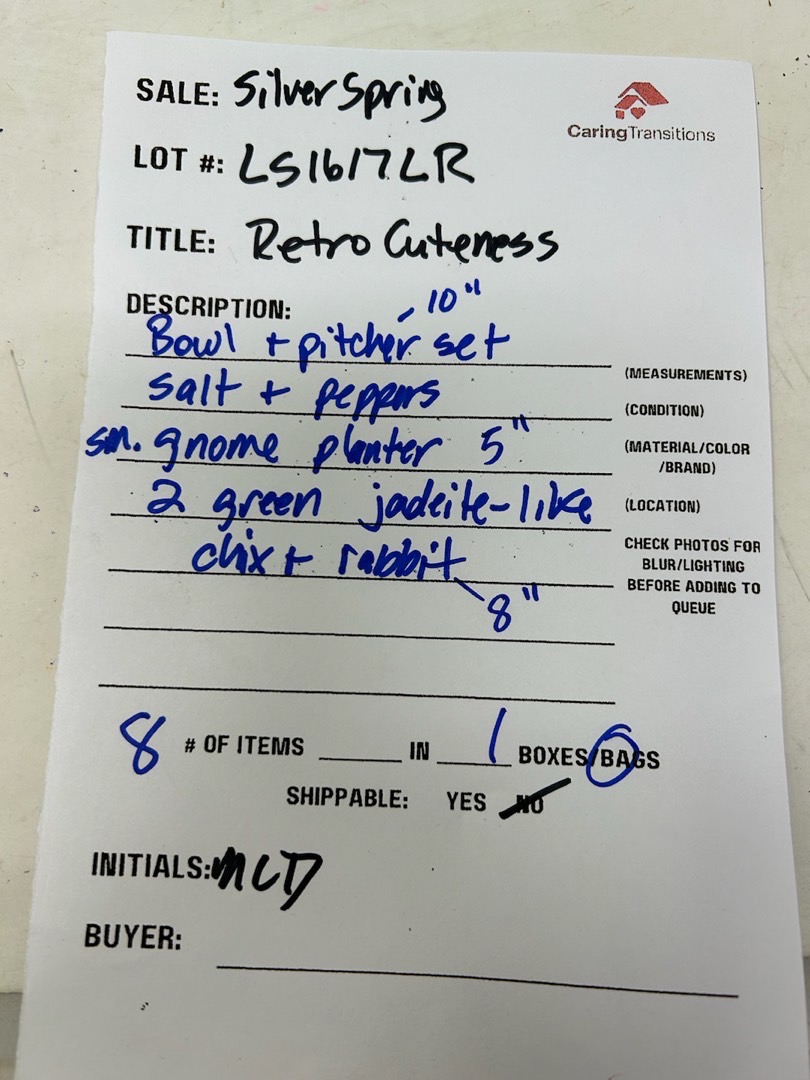 SALE: Silver Spring
CaringTransitions
LOT #: LS1617LR
TITLE: Retro Cuteness
DESCRIPTION: 10"
Bowl + pitcher set
(MEASUREMENTS)
salt + peppers
(CONDITION)
sm. gnome planter 5"
(MATERIAL/COLOR
/BRAND)
2 green jadeite-like
(LOCATION)
chix + rabbit
8"
CHECK PHOTOS FOR
BLUR/LIGHTING
BEFORE ADDING TO
QUEUE
8 # OF ITEMS ______ IN 1 BOXES/BAGS
SHIPPABLE: YES NO
INITIALS: MCD
BUYER: